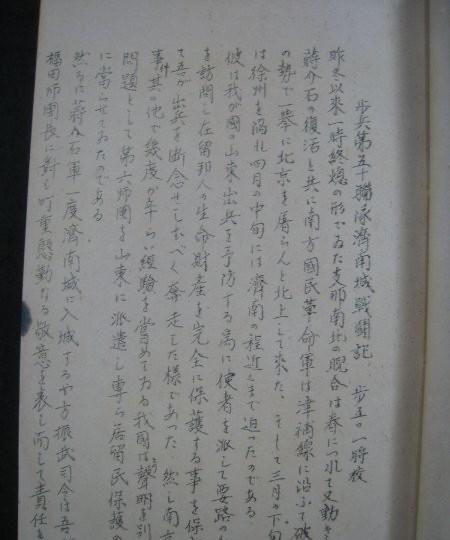 歩兵第五十聯隊濟南城戰鬪記 歩五〇一將校
昨冬以来一時終熄の形でゐた支那南北の睨合は春につれて又動き
蒋介石の復活と共に南方國民革命軍は津浦線に沿ふて破
の勢で一擧に北京を屠らんと北上して来た。そして三月の下旬
は徐州を陥れ四月の中旬には濟南の程近くまで迫ったのである
彼は我が國の山東出兵を予防する為に使者を派して要路の
を訪問し在留邦人の生命財産を完全に保護する事を保
て吾が出兵を断念せしむべく奔走した様であった 然し南京
事件其の他で幾度か辛らい経験を嘗めてゐる我國は聲明を別
問題として第六師團を山東に派遣し専ら居留民保護の
に當らせてゐたのである。
然るに蒋介石軍一度濟南城に入城するや方振武司令は吾
福田師團長に對し叮重慇懃なる敬意を表し而して責任を